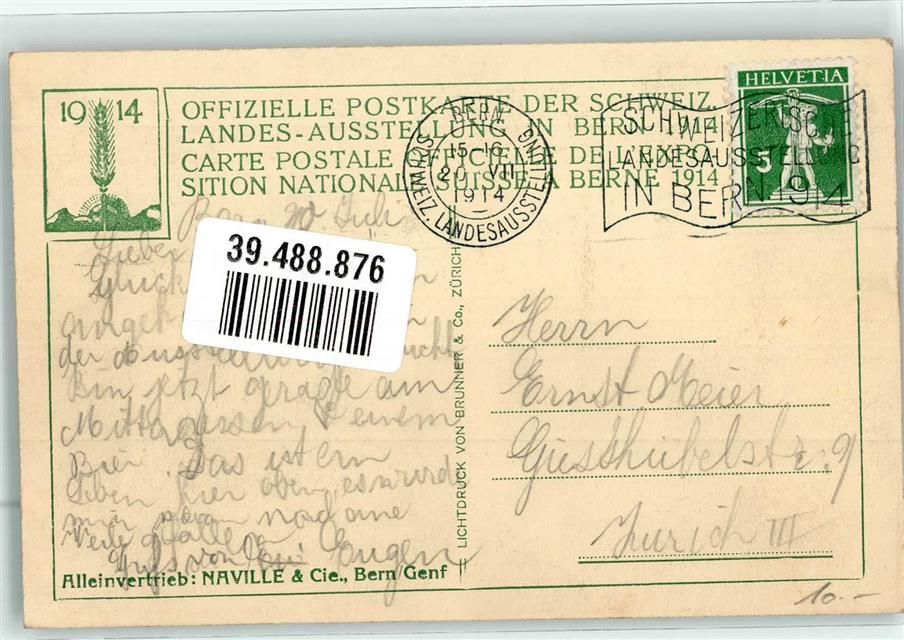 1914
OFFIZIELLE POSTKARTE DER SCHWEIZ.
LANDES-AUSSTELLUNG IN BERN 1914
CARTE POSTALE OFFICIELLE DE L'EXPO-
SITION NATIONALE SUISSE A BERNE 1914
BERN
15-16
20 VII
1914
SCHWEIZ. LANDESAUSSTELLUNG
SCHWEIZERISCHE
LANDESAUSSTELLUNG
IN BERN 1914
HELVETIA
5
39.488.876
Bern 20 Juli
Lieber
Glück
der Ausstellung
Bin jetzt grade am
Mittagessen & einem
Bier. Das ist ein
Leben hier oben, es wird
mir
Viele
Gruss von Eugen
LICHTDRUCK VON BRUNNER & Co., ZÜRICH
Herrn
Ernst Meier
Gusthubelstr. 9
Zürich III
Alleinvertrieb: NAVILLE & Cie., Bern/Genf
10.-